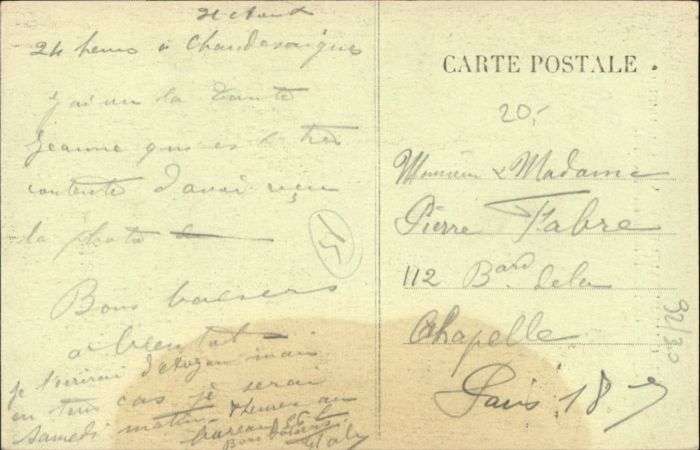 24 heures à Chaudesaigues
J'ai vu la Tante
Jeanne qui est très
contente d'avoir reçu
la photo
Bons baisers
a bientot
je t'ecrirai
en tous cas je serai
samedi matin 8 heures au
bureau
Bons baisers
CARTE POSTALE
20,-
Monsieur & Madame
Pierre Fabre
112 Bard de la
Chapelle
Paris 18
15
92/30